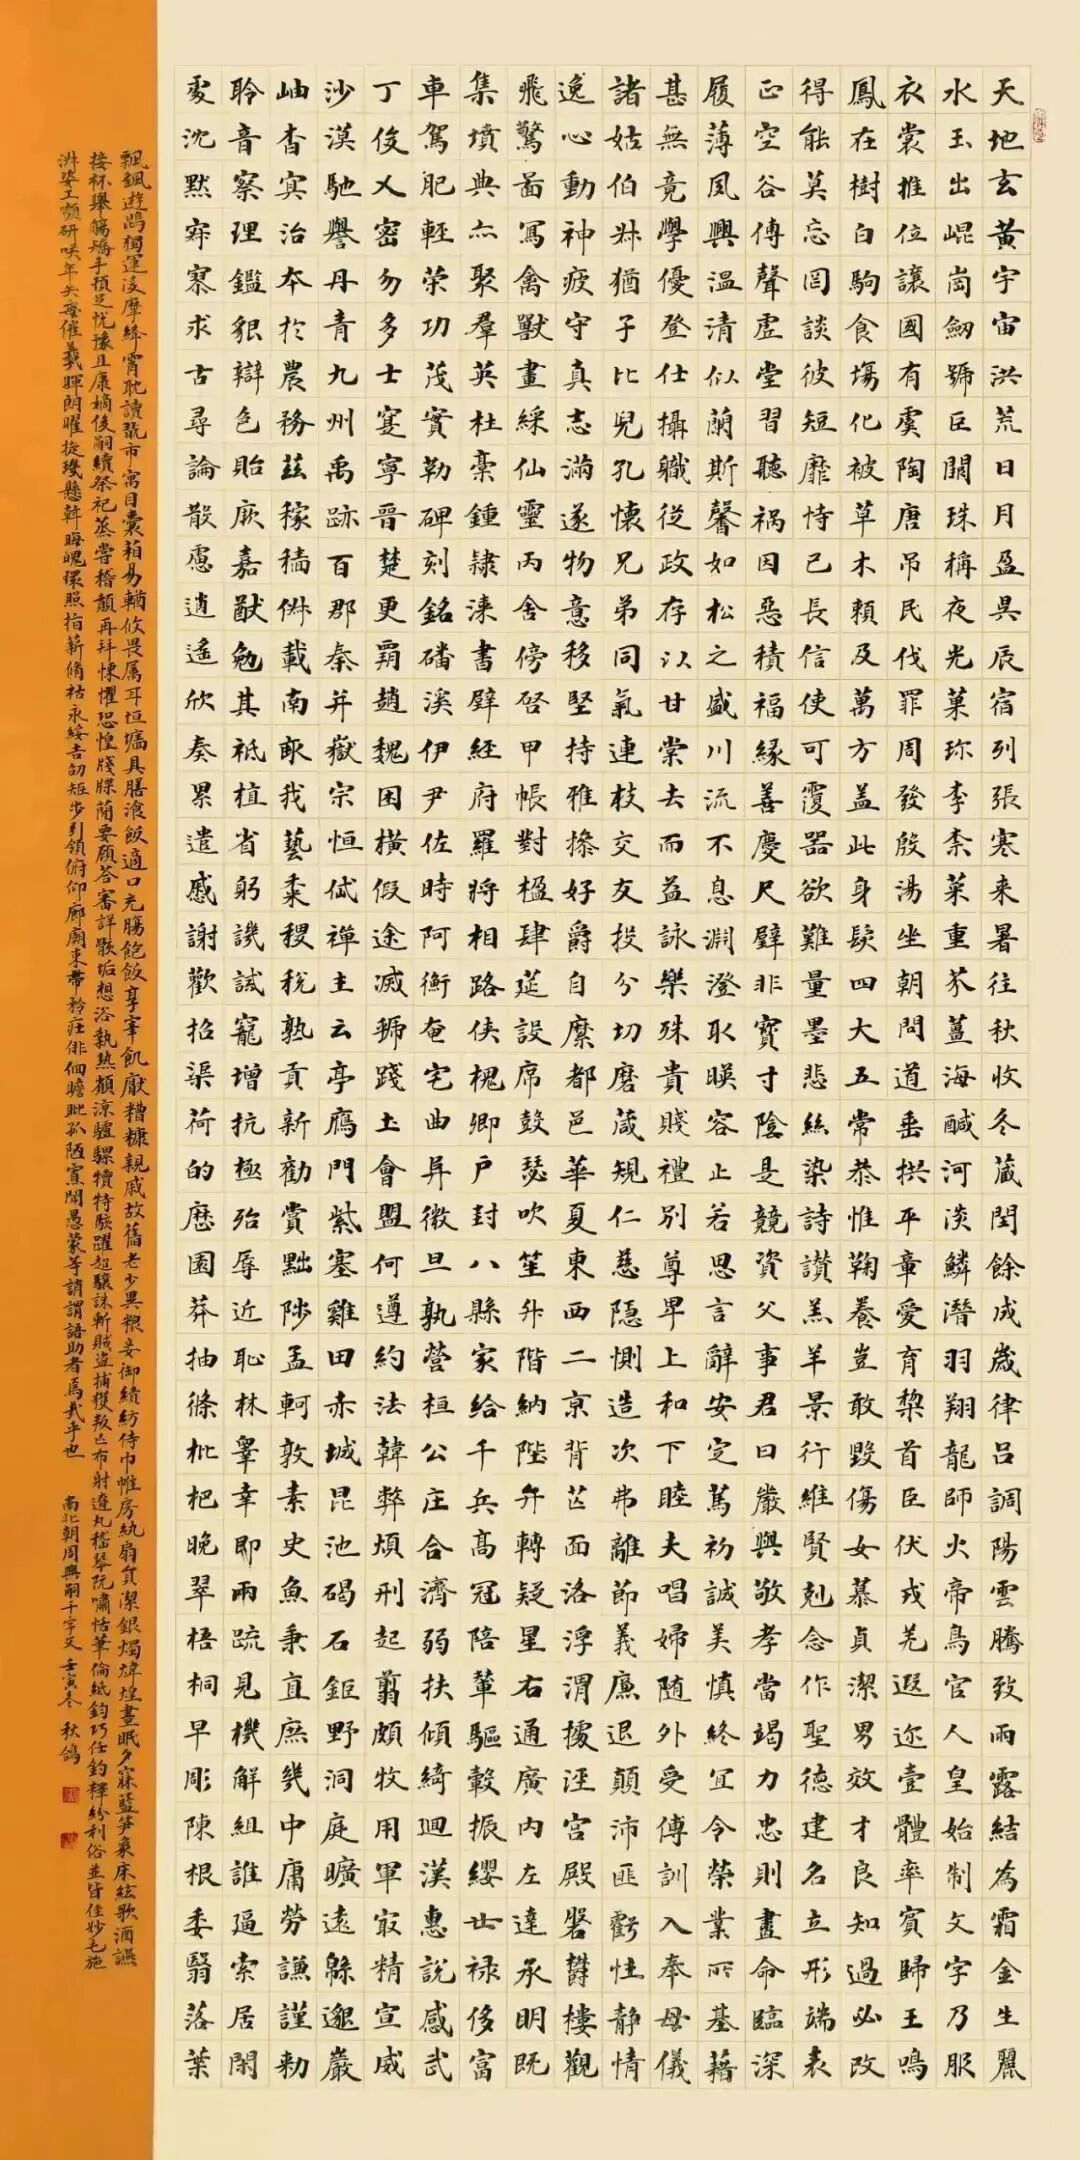 天地玄黃宇宙洪荒日月盈昃辰宿列張寒来暑往秋收冬藏閏餘成歲律吕調陽雲騰致雨露結為霜金生麗
水玉出崐崗劒號巨闕珠稱夜光菓珍李柰菜重芥薑海醎河淡鱗潛羽翔龍師火帝鳥官人皇始制文字乃服
衣裳推位讓國有虞陶唐吊民伐罪周發殷湯坐朝問道垂拱平章愛育黎首臣伏戎羌遐迩壹體率賓歸王鳴
鳳在樹白駒食場化被草木賴及萬方盖此身髮四大五常恭惟鞠養豈敢毀傷女慕貞潔男效才良知過必改
得能莫忘罔談彼短靡恃己長信使可覆器欲難量墨悲絲染詩讚羔羊景行維賢剋念作聖德建名立形端表
正空谷傳聲虛堂習聽禍因惡積福緣善慶尺璧非寶寸陰是競資父事君曰嚴與敬孝當竭力忠則盡命臨深
履薄夙興温清似蘭斯馨如松之盛川流不息淵澄取暎容止若思言辭安定篤初誠美慎終宜令榮業所基藉
甚無竟學優登仕攝職從政存以甘棠去而益詠樂殊貴賤禮別尊卑上和下睦夫唱婦随外受傅訓入奉母儀
諸姑伯叔猶子比兒孔懷兄弟同氣連枝交友投分切磨箴規仁慈隱惻造次弗離節義廉退顛沛匪虧性静情
逸心動神疲守真志滿逐物意移堅持雅操好爵自縻都邑華夏東西二京背芒面洛浮渭據涇宮殿盤鬱樓觀
飛驚啚寫禽獸畫綵仙靈丙舍傍啓甲帳對楹肆筵設席鼓瑟吹笙升階納陛弁轉疑星右通廣内左達承明既
集墳典亦聚羣英杜稾鍾隸漆書壁經府羅將相路侠槐卿户封八縣家給千兵高冠陪輦驅轂振纓世禄侈富
車駕肥輕策功茂實勒碑刻銘磻溪伊尹佐時阿衡奄宅曲阜微旦孰營桓公匡合濟弱扶傾綺迴漢惠說感武
丁俊乂密勿多士寔寧晉楚更霸趙魏困橫假途滅虢踐土會盟何遵約法韓弊煩刑起翦頗牧用軍最精宣威
沙漠馳譽丹青九州禹跡百郡秦并嶽宗恒岱禪主云亭鴈門紫塞雞田赤城昆池碣石鉅野洞庭曠遠緜邈巖
岫杳冥治本於農務茲稼穡俶載南畝我藝黍稷稅熟貢新勸賞黜陟孟軻敦素史魚秉直庶幾中庸勞謙謹勅
聆音察理鑑貌辯色貽厥嘉猷勉其祗植省躬譏誡寵增抗極殆辱近恥林皋幸即兩疏見機解組誰逼索居閑
處沈默寂寥求古尋論散慮逍遙欣奏累遣慼謝歡招渠荷的歷園莽抽條枇杷晚翠梧桐早彫陳根委翳落葉
飄颻遊鵾獨運淩摩絳霄耽讀翫市寓目囊箱易輶攸畏属耳垣牆具膳湌飯適口充腸飽飫享宰飢厭糟糠親戚故舊老少異糧妾御績紡侍巾帷房紈扇負潔銀燭煒煌晝眠夕寐藍笋象床絃歌酒讌
接杯舉觴矯手頓足悅豫且康嫡後嗣續祭祀蒸嘗稽顙再拜悚懼恐惶牋牒簡要顧答審詳骸垢想浴執热願涼驢騾犢特駭躍超驤誅斬賊盜捕獲叛亡布射遼丸嵇琴阮嘯恬筆倫紙鈞巧任釣釋紛利俗並皆佳妙毛施
淑姿工顰研咲年矢每催羲暉朗曜旋璣懸斡晦魄環照指薪脩祜永綏吉劭矩步引領俯仰廊廟束帶矜莊徘徊瞻眺孤陋寡聞愚蒙等誚謂語助者焉哉乎也 南北朝周興嗣千字文 壬寅冬 秋鴿